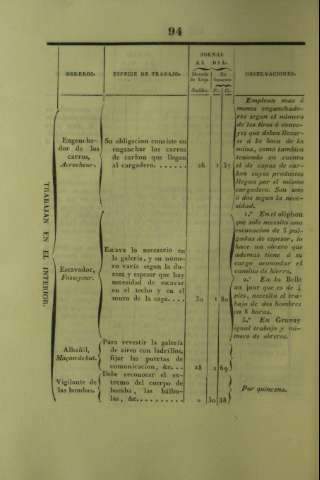 94
JORNAL
AL DIA.
OBREROS.
ESPECIE DE TRABAJO.
Moneda de Lieja.
En
OBSERVACIONES.
TRABAJAN EN EL INTERIOR.
Enganchador de los carros,
Accrocheur.
Su obligacion consiste en
enganchar los carros
de carbon que llegan
al cargadero. . . . . .
26
1 57
Emplean mas ó
menos enganchadores segun el número
de los tiros ó
que deben llevarse á la boca de la
mina, como tambien
teniendo en cuenta
el de capas de carbon cuyos productos
llegan por el mismo
cargadero. Son uno
ó dos segun la necesidad.
Excavador,
Fosseyeur.
Excava lo necesario en
la galería, y su número varia segun la dureza y espesor que hay
necesidad de excavar
en el techo y en el
muro de la capa. . . .
30
1 80
1.° En el oliphon
que solo necesita una
excavacion de 5 pulgadas de espesor, lo
hace un obrero que
ademas tiene á su
cargo acomodar el
camino de hierro.
2.° En la Belle
au jour que es de 4
pies, necesita el trabajo de dos hombres
en 8 horas.
3.° En Gravay
igual trabajo y número de obreros.
Albañil,
Para revestir la galería
de aireo con ladrillos,
fijar las puertas de
comunicacion, &c. . .
28
1 69
Vigilante de
las bombas.
Debe reconocer el extremo del cuerpo de
bomba, las
&c. . . . . . . . .
30 38
Por quincena.